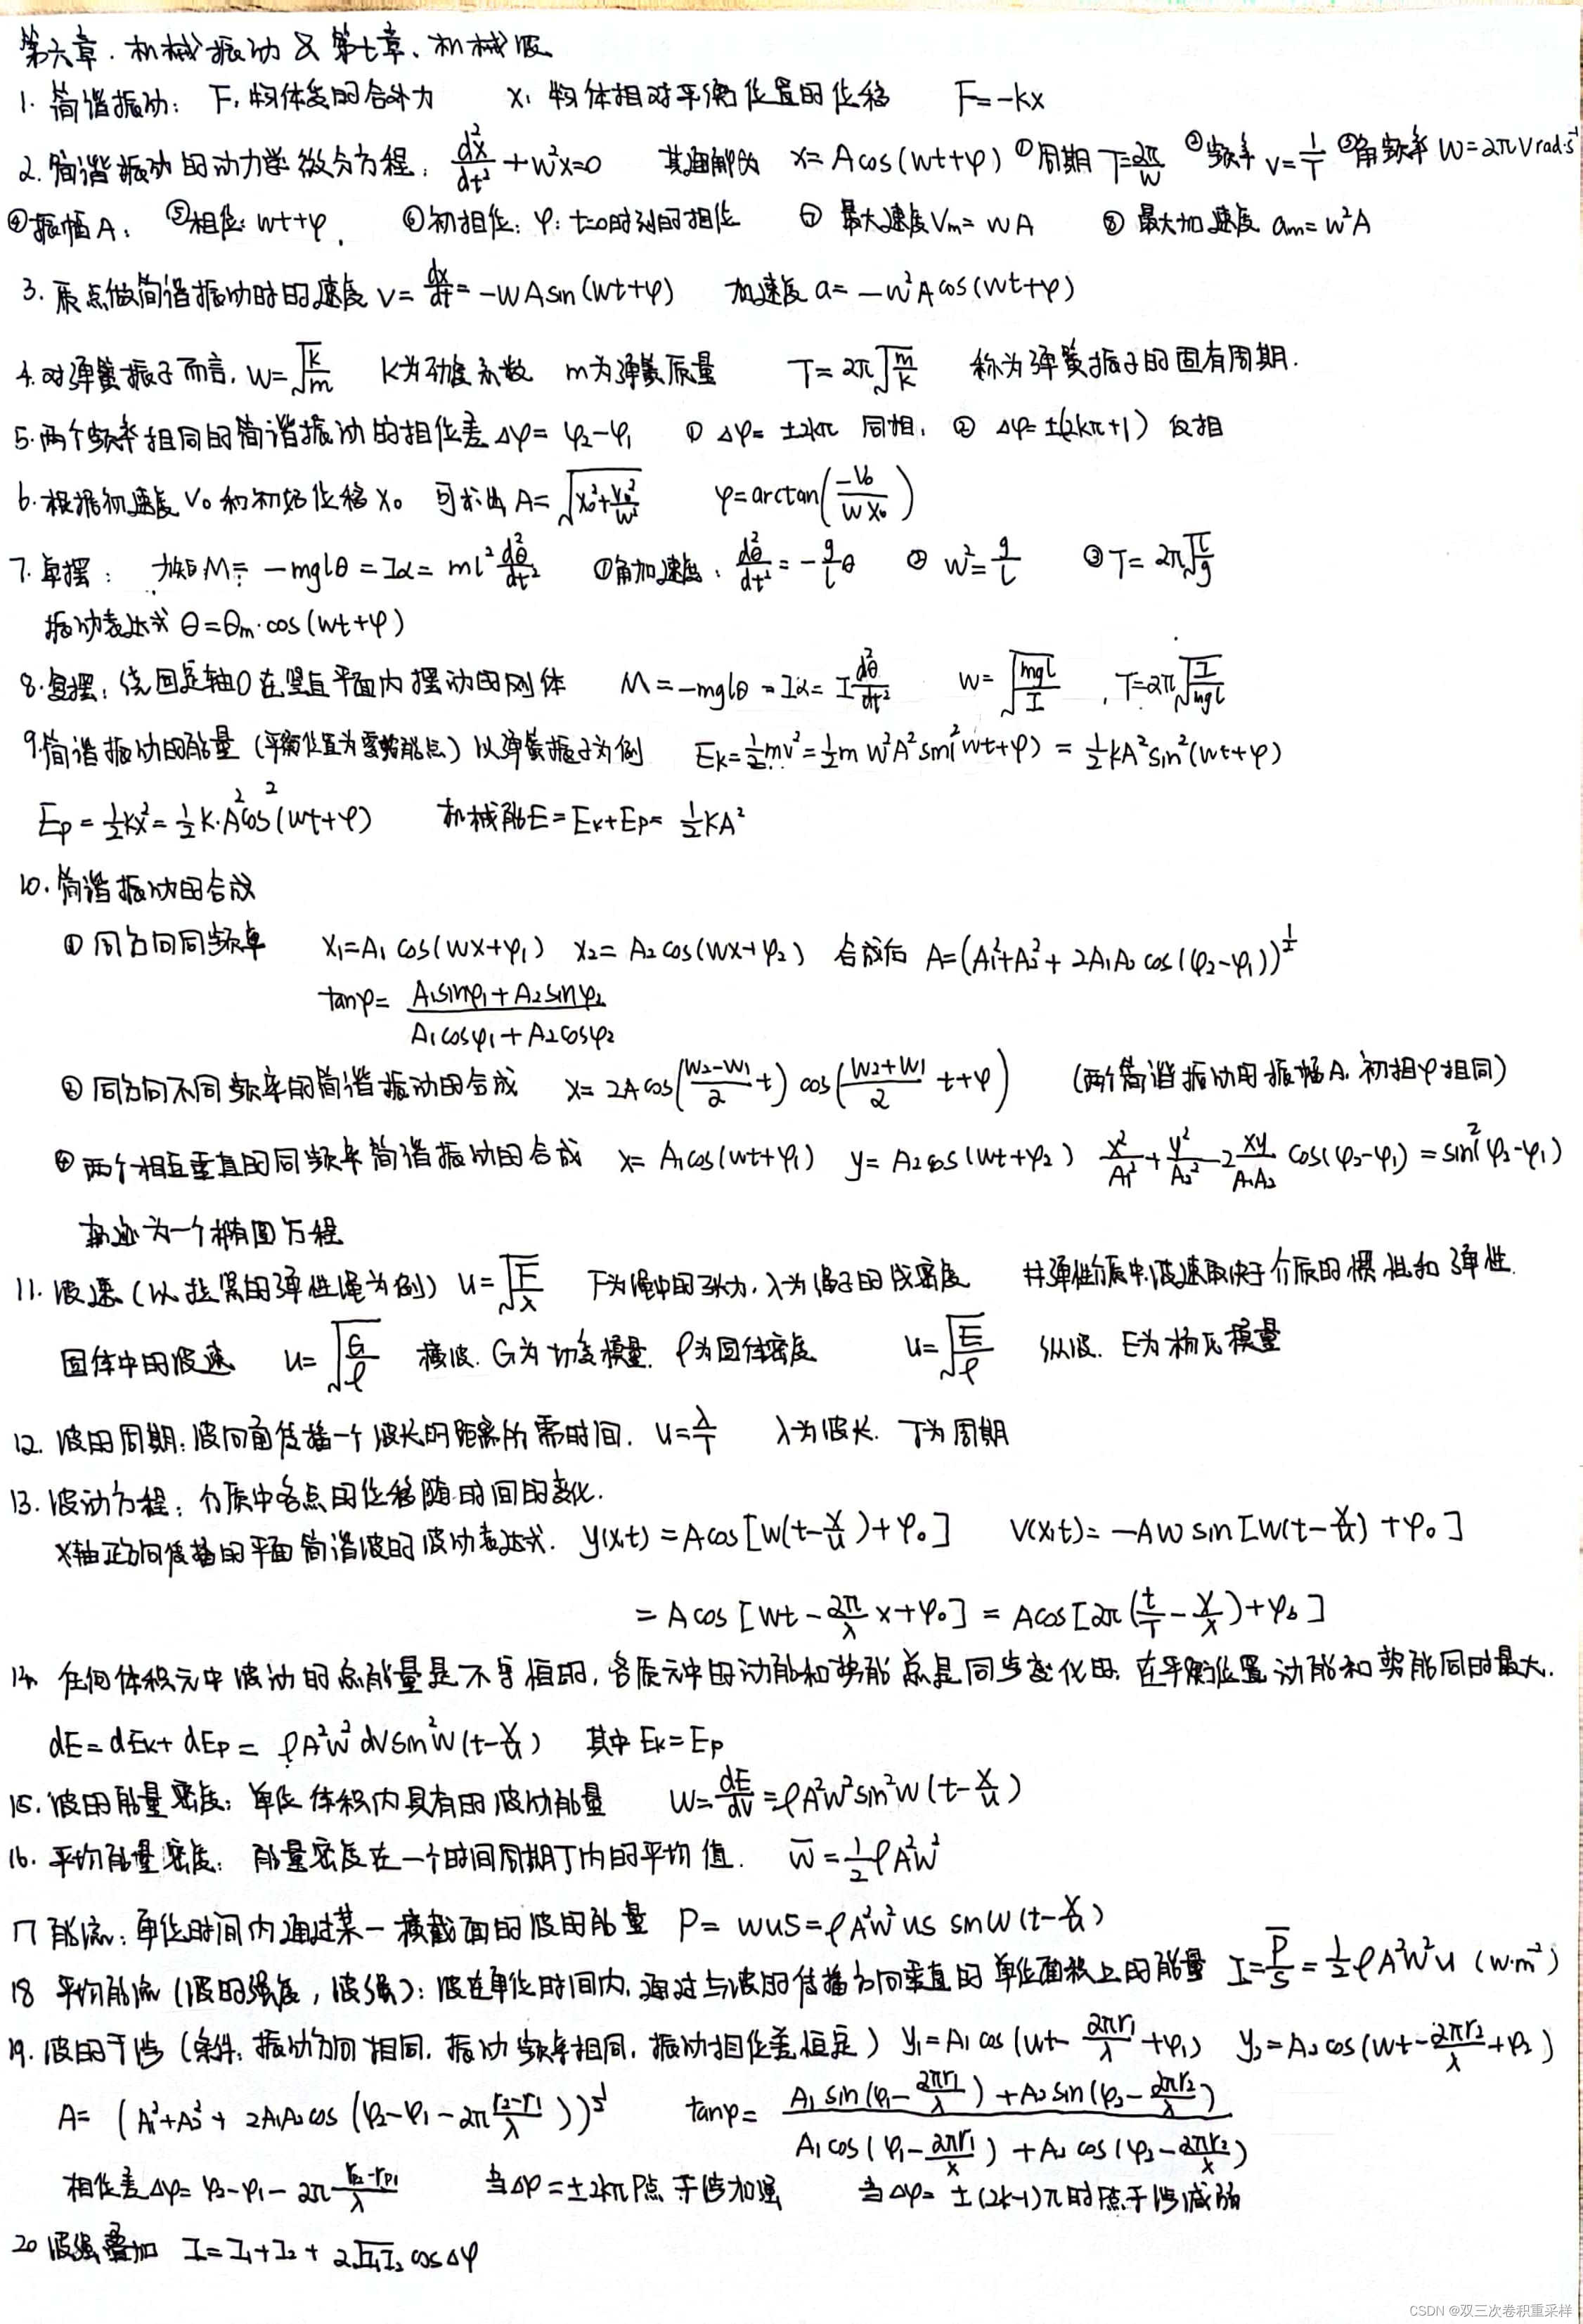 第六章.机械振动 & 第七章、机械波
1. 简谐振动: F: 物体受的合外力 x: 物体相对平衡位置的位移 F=-kx
2. 简谐振动的动力学微分方程: d²x/dt²+w²x=0 其通解为 x=Acos(wt+φ) ①周期 T=2π/w ②频率 ν=1/T ③角频率 w=2πν rad·s⁻¹
④振幅A: ⑤相位: wt+φ. ⑥初相位: φ: t=0时刻的相位 ⑦ 最大速度Vm=wA ⑧ 最大加速度 am=w²A
3. 质点做简谐振动时的速度 v=dx/dt=-wAsin(wt+φ) 加速度 a=-w²Acos(wt+φ)
4. 对弹簧振子而言, w=√(k/m) k为劲度系数 m为弹簧质量 T=2π√(m/k) 称为弹簧振子的固有周期.
5. 两个频率相同的简谐振动的相位差 Δφ=φ2-φ1 ① Δφ=±2kπ 同相, ② Δφ=±(2kπ+1) 反相
6. 根据初速度 V0 和初始位移 X0 可求出 A=√(x0²+v0²/w²) φ=arctan(-V0/wX0)
7. 单摆: 力矩M=-mglθ=Iα=ml²d²θ/dt² ①角加速度: d²θ/dt²=-g/l θ ② w²=g/l ③T=2π√(l/g)
振动表达式 θ=θm·cos(wt+φ)
8. 复摆: 绕固定轴O在竖直平面内摆动的刚体 M=-mglθ=Iα=I d²θ/dt² w=√(mgl/I) , T=2π√(I/mgl)
9. 简谐振动的能量 (平衡位置为零势能点) 以弹簧振子为例 Ek=½mv²=½mw²A²sin²(wt+φ)=½kA²sin²(wt+φ)
Ep=½kx²=½k·A²cos²(wt+φ) 机械能E=Ek+Ep=½kA²
10. 简谐振动的合成
① 同方向同频率 x1=A1cos(wx+φ1) x2=A2cos(wx+φ2) 合成后 A=(A1²+A2²+2A1A2cos(φ2-φ1))^½
tanφ=(A1sinφ1+A2sinφ2)/(A1cosφ1+A2cosφ2)
② 同方向不同频率的简谐振动的合成 x=2Acos((w2-w1)/2 t)cos((w2+w1)/2 t+φ) (两个简谐振动的振幅A.初相φ相同)
④ 两个相互垂直的同频率简谐振动的合成 x=A1cos(wt+φ1) y=A2cos(wt+φ2) x²/A1²+y²/A2²-2xy/A1A2 cos(φ2-φ1)=sin²(φ2-φ1)
轨迹为一个椭圆方程
11. 波速 (以拉紧的弹性绳为例) u=√(F/λ) F为绳中的张力, λ为绳子的线密度 弹性介质中,波速取决于介质的惯性和弹性.
固体中的波速 u=√(G/ρ) 横波. G为切变模量. ρ为固体密度 u=√(E/ρ) 纵波. E为杨氏模量
12. 波的周期: 波向前传播一个波长的距离所需时间. u=λ/T λ为波长. T为周期
13. 波动方程: 介质中各点的位移随时间的变化.
x轴正方向传播的平面简谐波的波动表达式. y(x,t)=Acos[w(t-x/u)+φ0] v(x,t)=-Aw sin[w(t-x/u)+φ0]
=Acos[wt-2π/λ x+φ0]=Acos[2π(t/T-x/λ)+φ0]
14. 任何体积元中波动的总能量是不守恒的, 各质元中的动能和势能总是同步变化的. 在平衡位置动能和势能同时最大.
dE=dEk+dEp=ρA²w²dVsin²w(t-x/u) 其中 Ek=Ep
15. 波的能量密度: 单位体积内具有的波动能量 w=dE/dV=ρA²w²sin²w(t-x/u)
16. 平均能量密度: 能量密度在一个时间周期T内的平均值. w̄=½ρA²w²
17 能流: 单位时间内通过某一横截面的波的能量 P=wuS=ρA²w²us sinw(t-x/u)
18 平均能流 (波的强度, 波强): 波在单位时间内, 通过与波的传播方向垂直的单位面积上的能量 I=P̄/S=½ρA²w²u (w·m⁻²)
19. 波的干涉 (条件: 振动方向相同. 振动频率相同, 振动相位差恒定) y1=A1cos(wt-2πr1/λ+φ1) y2=A2cos(wt-2πr2/λ+φ2)
A=(A1²+A2²+2A1A2cos(φ2-φ1-2π(r2-r1)/λ))^½ tanφ=(A1sin(φ1-2πr1/λ)+A2sin(φ2-2πr2/λ))/(A1cos(φ1-2πr1/λ)+A2cos(φ2-2πr2/λ))
相位差Δφ=φ2-φ1-2π(r2-r1)/λ 当Δφ=±2kπ P点干涉加强 当Δφ=±(2k-1)π时P点干涉减弱
20 波强叠加 I=I1+I2+2√(I1I2)cosΔφ
CSDN @双三次卷积重采样